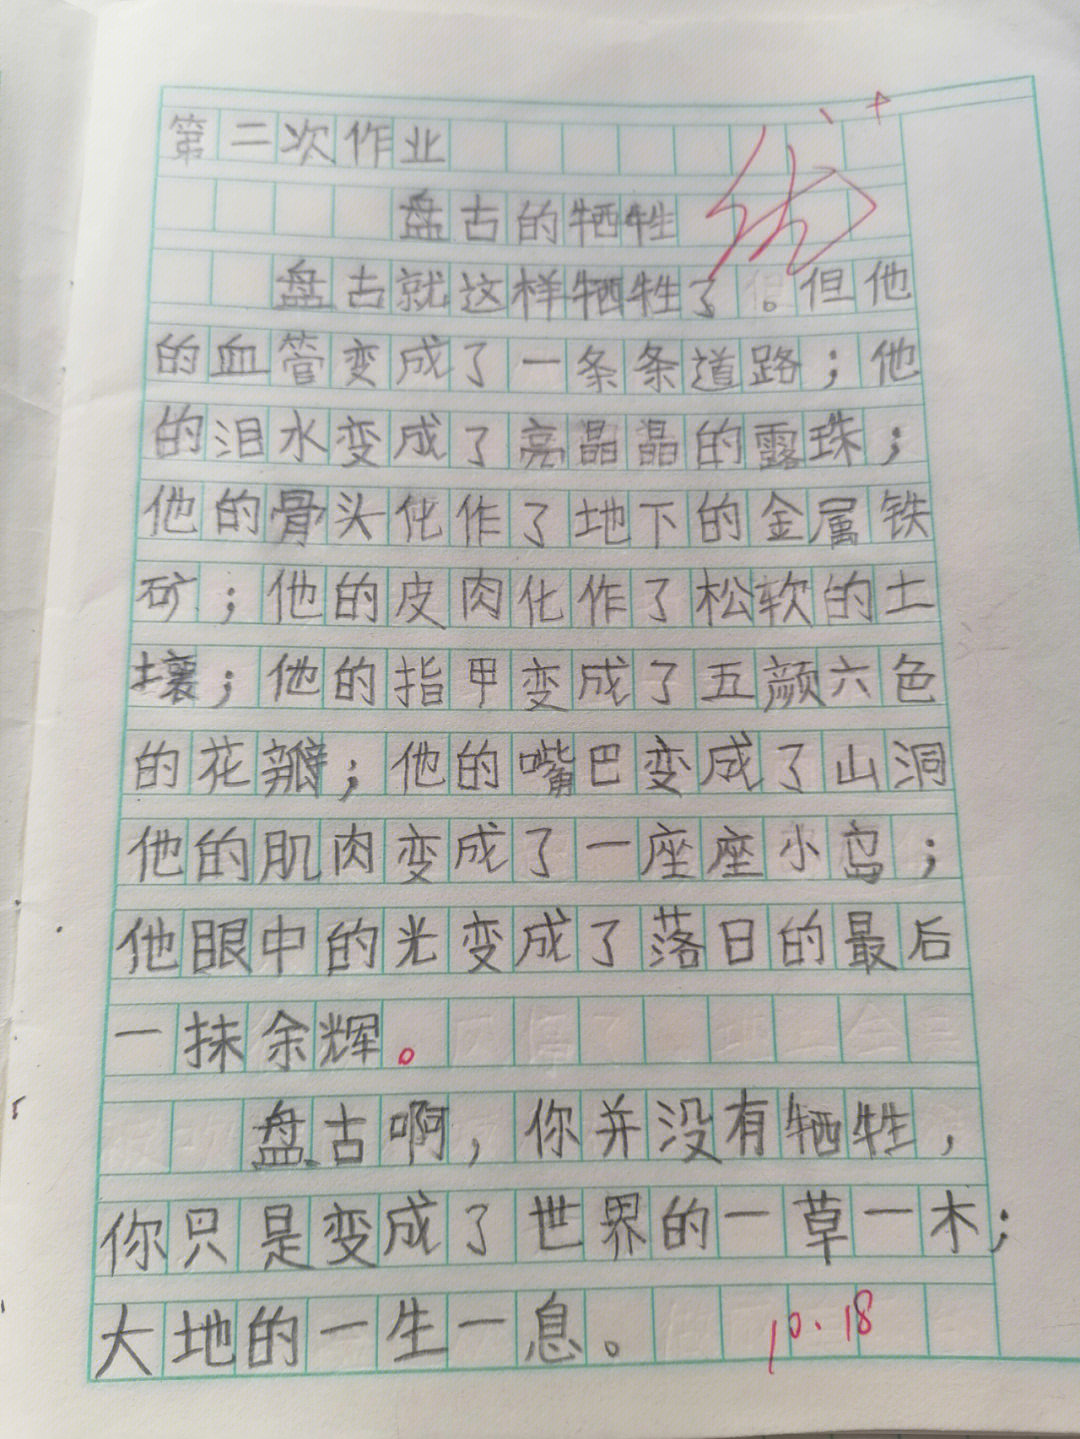 第二次作业
优+
盘古的牺牲
盘古就这样牺牲了。但他
的血管变成了一条条道路；他
的泪水变成了亮晶晶的露珠；
他的骨头化作了地下的金属铁
矿；他的皮肉化作了松软的土
壤；他的指甲变成了五颜六色
的花瓣；他的嘴巴变成了山洞
他的肌肉变成了一座座小岛；
他眼中的光变成了落日的最后
一抹余辉。
盘古啊，你并没有牺牲，
你只是变成了世界的一草一木；
大地的一生一息。
10.18